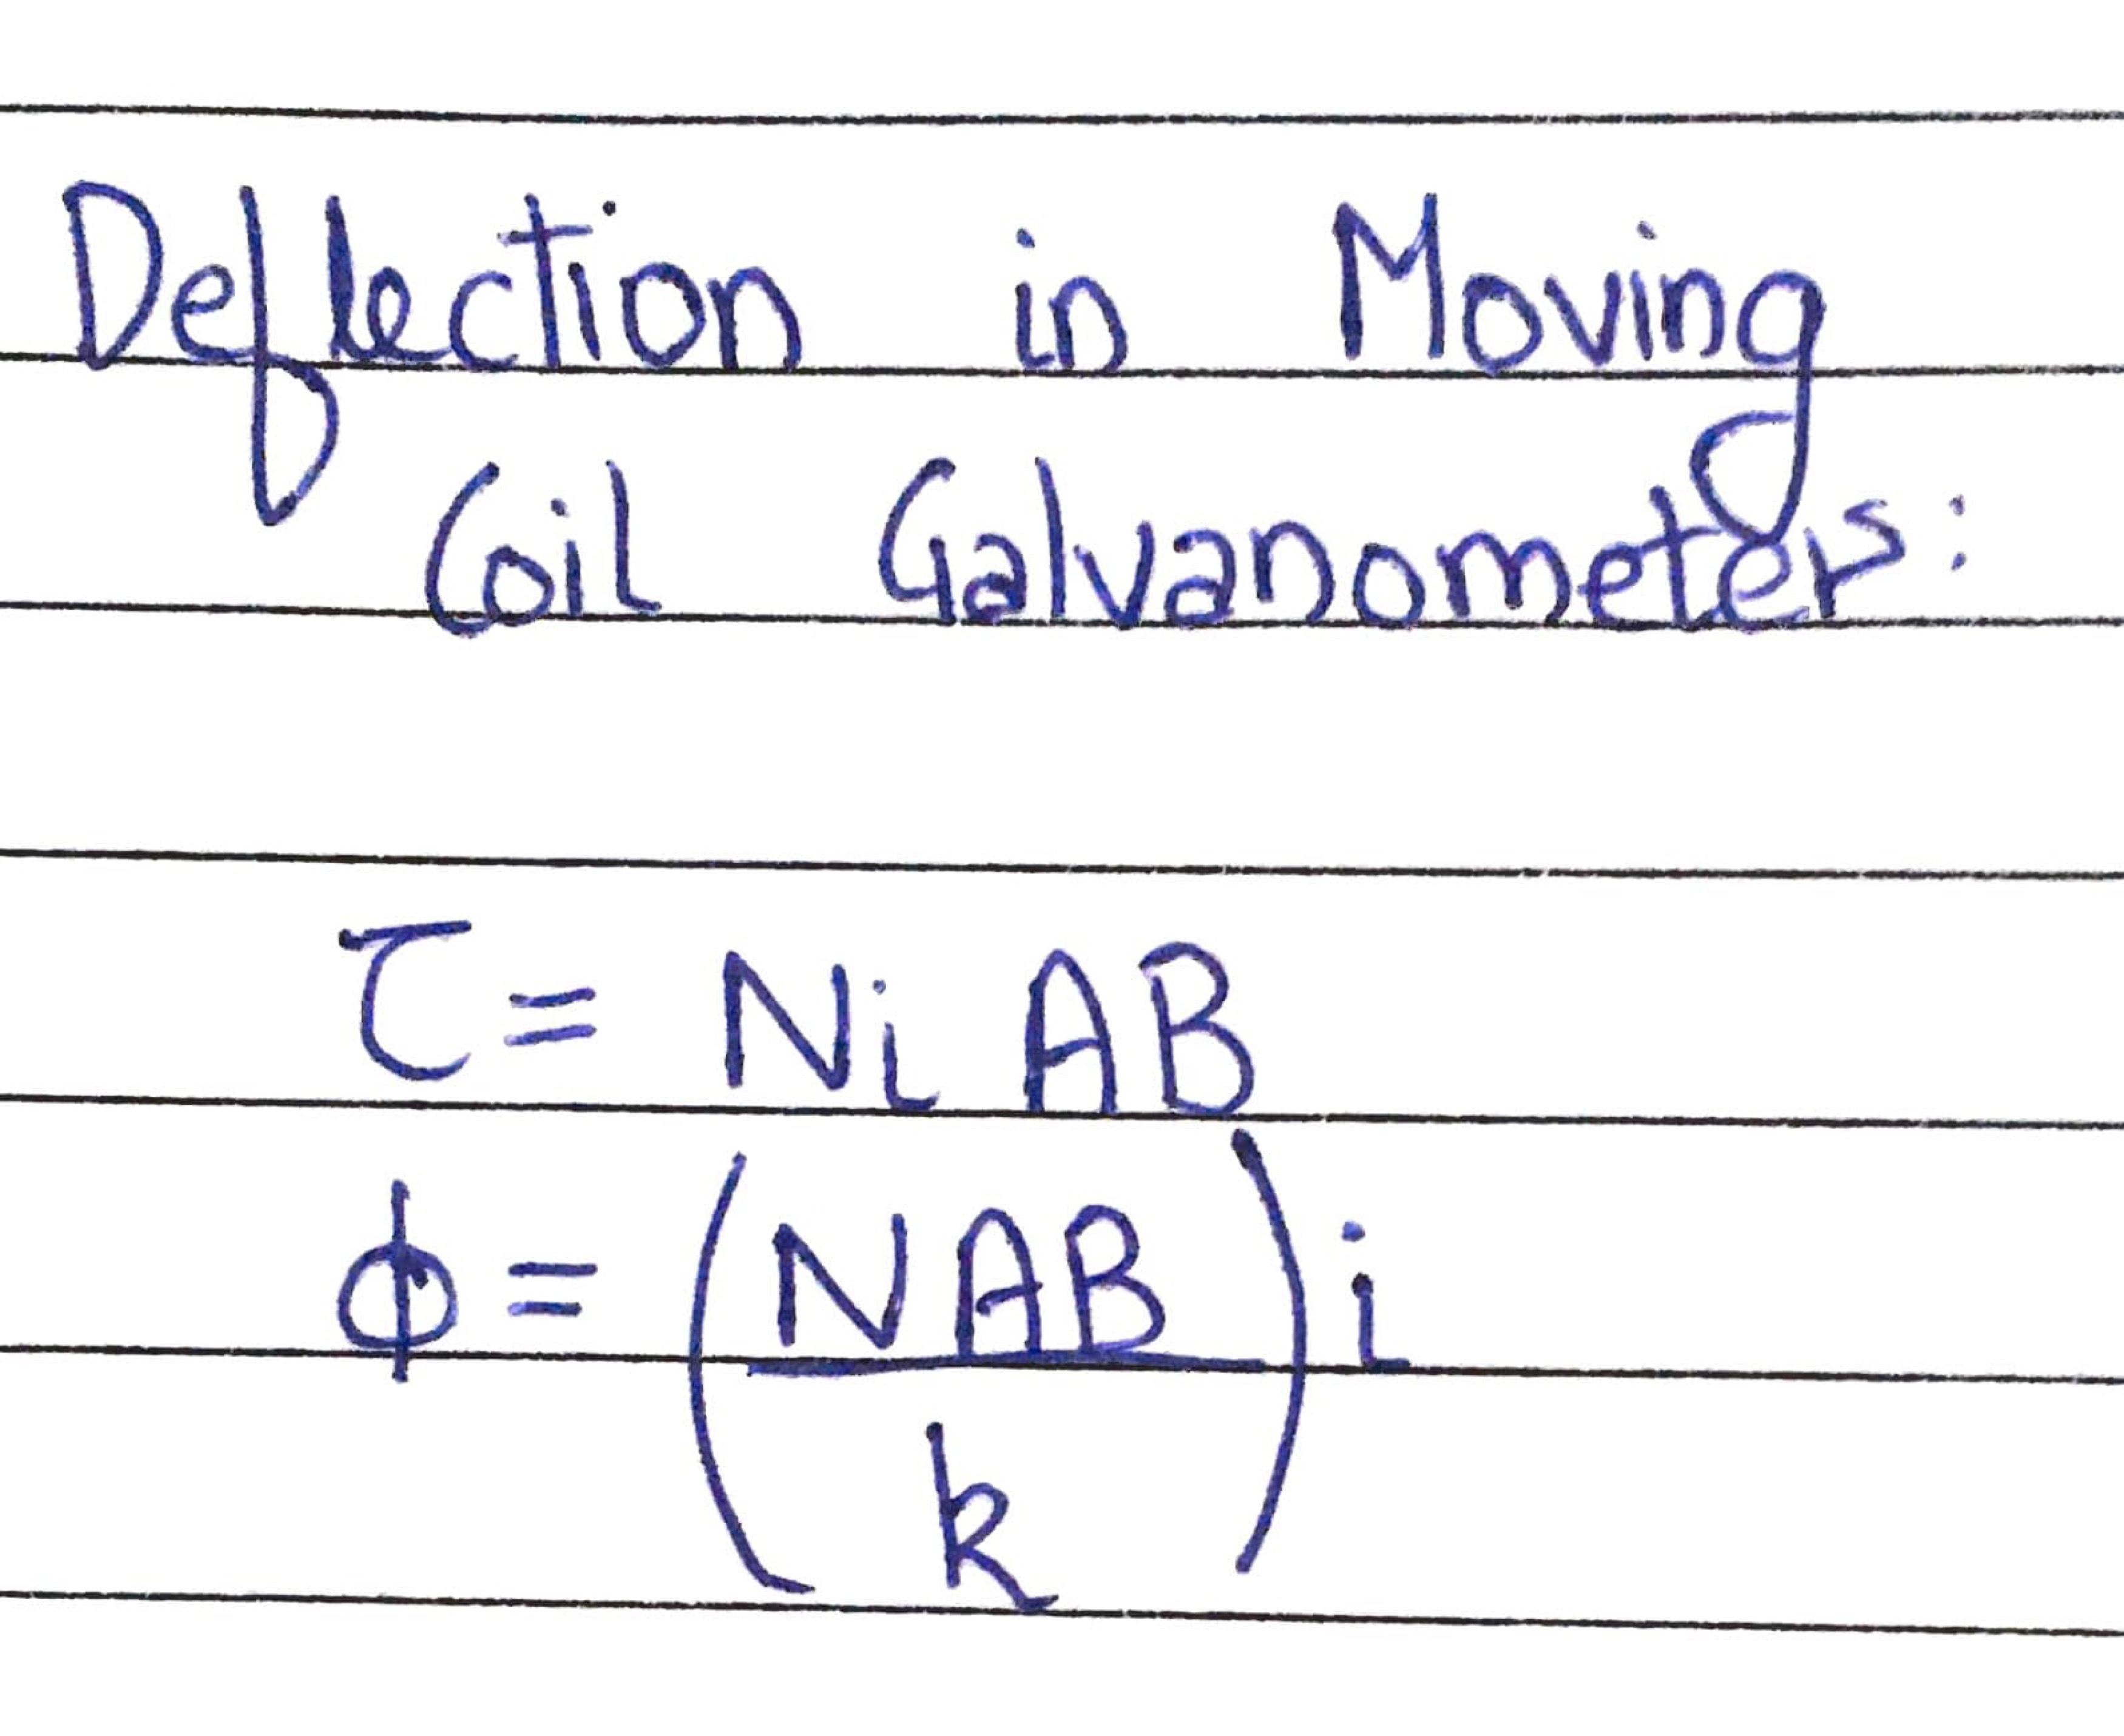 Deflection in Moving
Coil Galvanometers:
τ = Ni AB
ϕ = (NAB / k) i